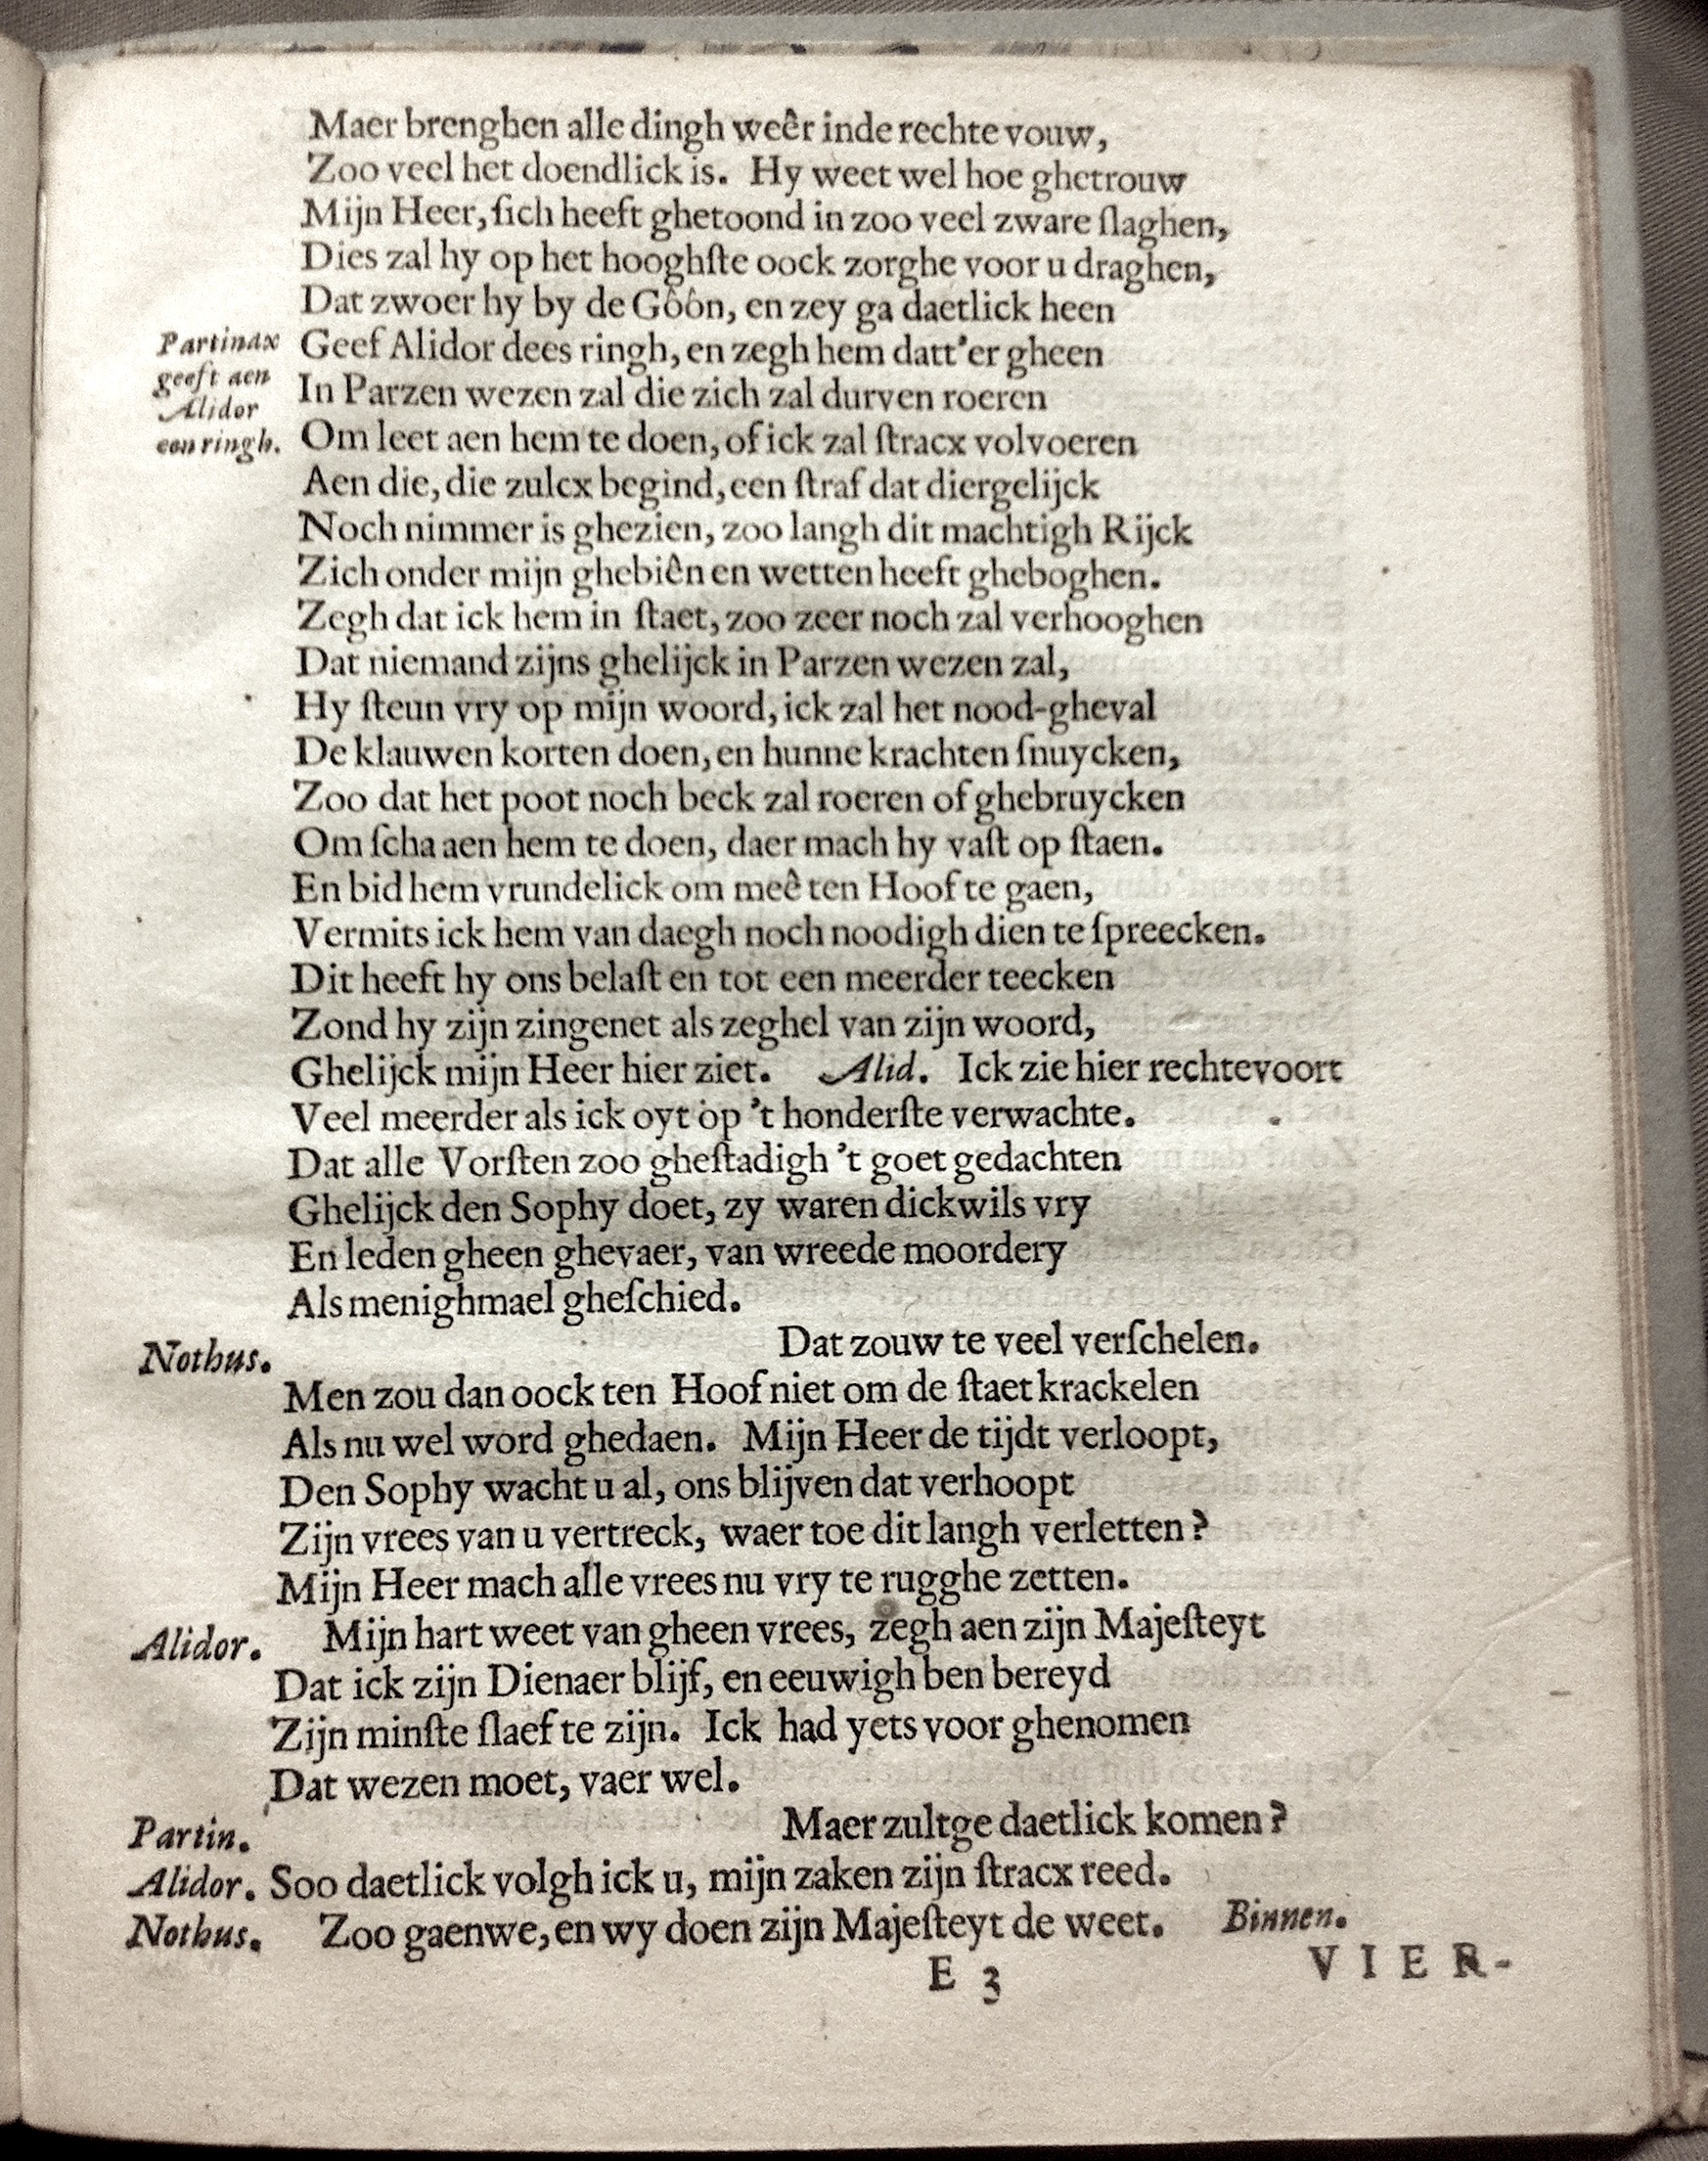 Maer brenghen alle dingh weêr inde rechte vouw,
Zoo veel het doendlick is. Hy weet wel hoe ghetrouw
Mijn Heer, ſich heeft ghetoond in zoo veel zware ſlaghen,
Dies zal hy op het hooghſte oock zorghe voor u draghen,
Dat zwoer hy by de Gôôn, en zey ga daetlick heen
Partinax
geeft aen
Alidor
een ringh.
Geef Alidor dees ringh, en zegh hem datt'er gheen
In Parzen wezen zal die zich zal durven roeren
Om leet aen hem te doen, of ick zal ſtracx volvoeren
Aen die, die zulcx begind, een ſtraf dat diergelijck
Noch nimmer is ghezien, zoo langh dit machtigh Rijck
Zich onder mijn ghebiên en wetten heeft gheboghen.
Zegh dat ick hem in ſtaet, zoo zeer noch zal verhooghen
Dat niemand zijns ghelijck in Parzen wezen zal,
Hy ſteun vry op mijn woord, ick zal het nood-gheval
De klauwen korten doen, en hunne krachten ſnuycken,
Zoo dat het poot noch beck zal roeren of ghebruycken
Om ſcha aen hem te doen, daer mach hy vaſt op ſtaen.
En bid hem vrundelick om meê ten Hoof te gaen,
Vermits ick hem van daegh noch noodigh dien te ſpreecken.
Dit heeft hy ons belaſt en tot een meerder teecken
Zond hy zijn zingenet als zeghel van zijn woord,
Ghelijck mijn Heer hier ziet. Alid. Ick zie hier rechtevoort
Veel meerder als ick oyt op 't honderſte verwachte.
Dat alle Vorſten zoo gheſtadigh 't goet gedachten
Ghelijck den Sophy doet, zy waren dickwils vry
En leden gheen ghevaer, van wreede moordery
Als menighmael gheſchied.
Nothus. Dat zouw te veel verſchelen.
Men zou dan oock ten Hoof niet om de ſtaet krackelen
Als nu wel word ghedaen. Mijn Heer de tijdt verloopt,
Den Sophy wacht u al, ons blijven dat verhoopt
Zijn vrees van u vertreck, waer toe dit langh verletten?
Mijn Heer mach alle vrees nu vry te rugghe zetten.
Alidor. Mijn hart weet van gheen vrees, zegh aen zijn Majeſteyt
Dat ick zijn Dienaer blijf, en eeuwigh ben bereyd
Zijn minſte ſlaef te zijn. Ick had yets voor ghenomen
Dat wezen moet, vaer wel.
Partin. Maer zultge daetlick komen?
Alidor. Soo daetlick volgh ick u, mijn zaken zijn ſtracx reed.
Nothus. Zoo gaenwe, en wy doen zijn Majeſteyt de weet. Binnen.
E 3 VIER-